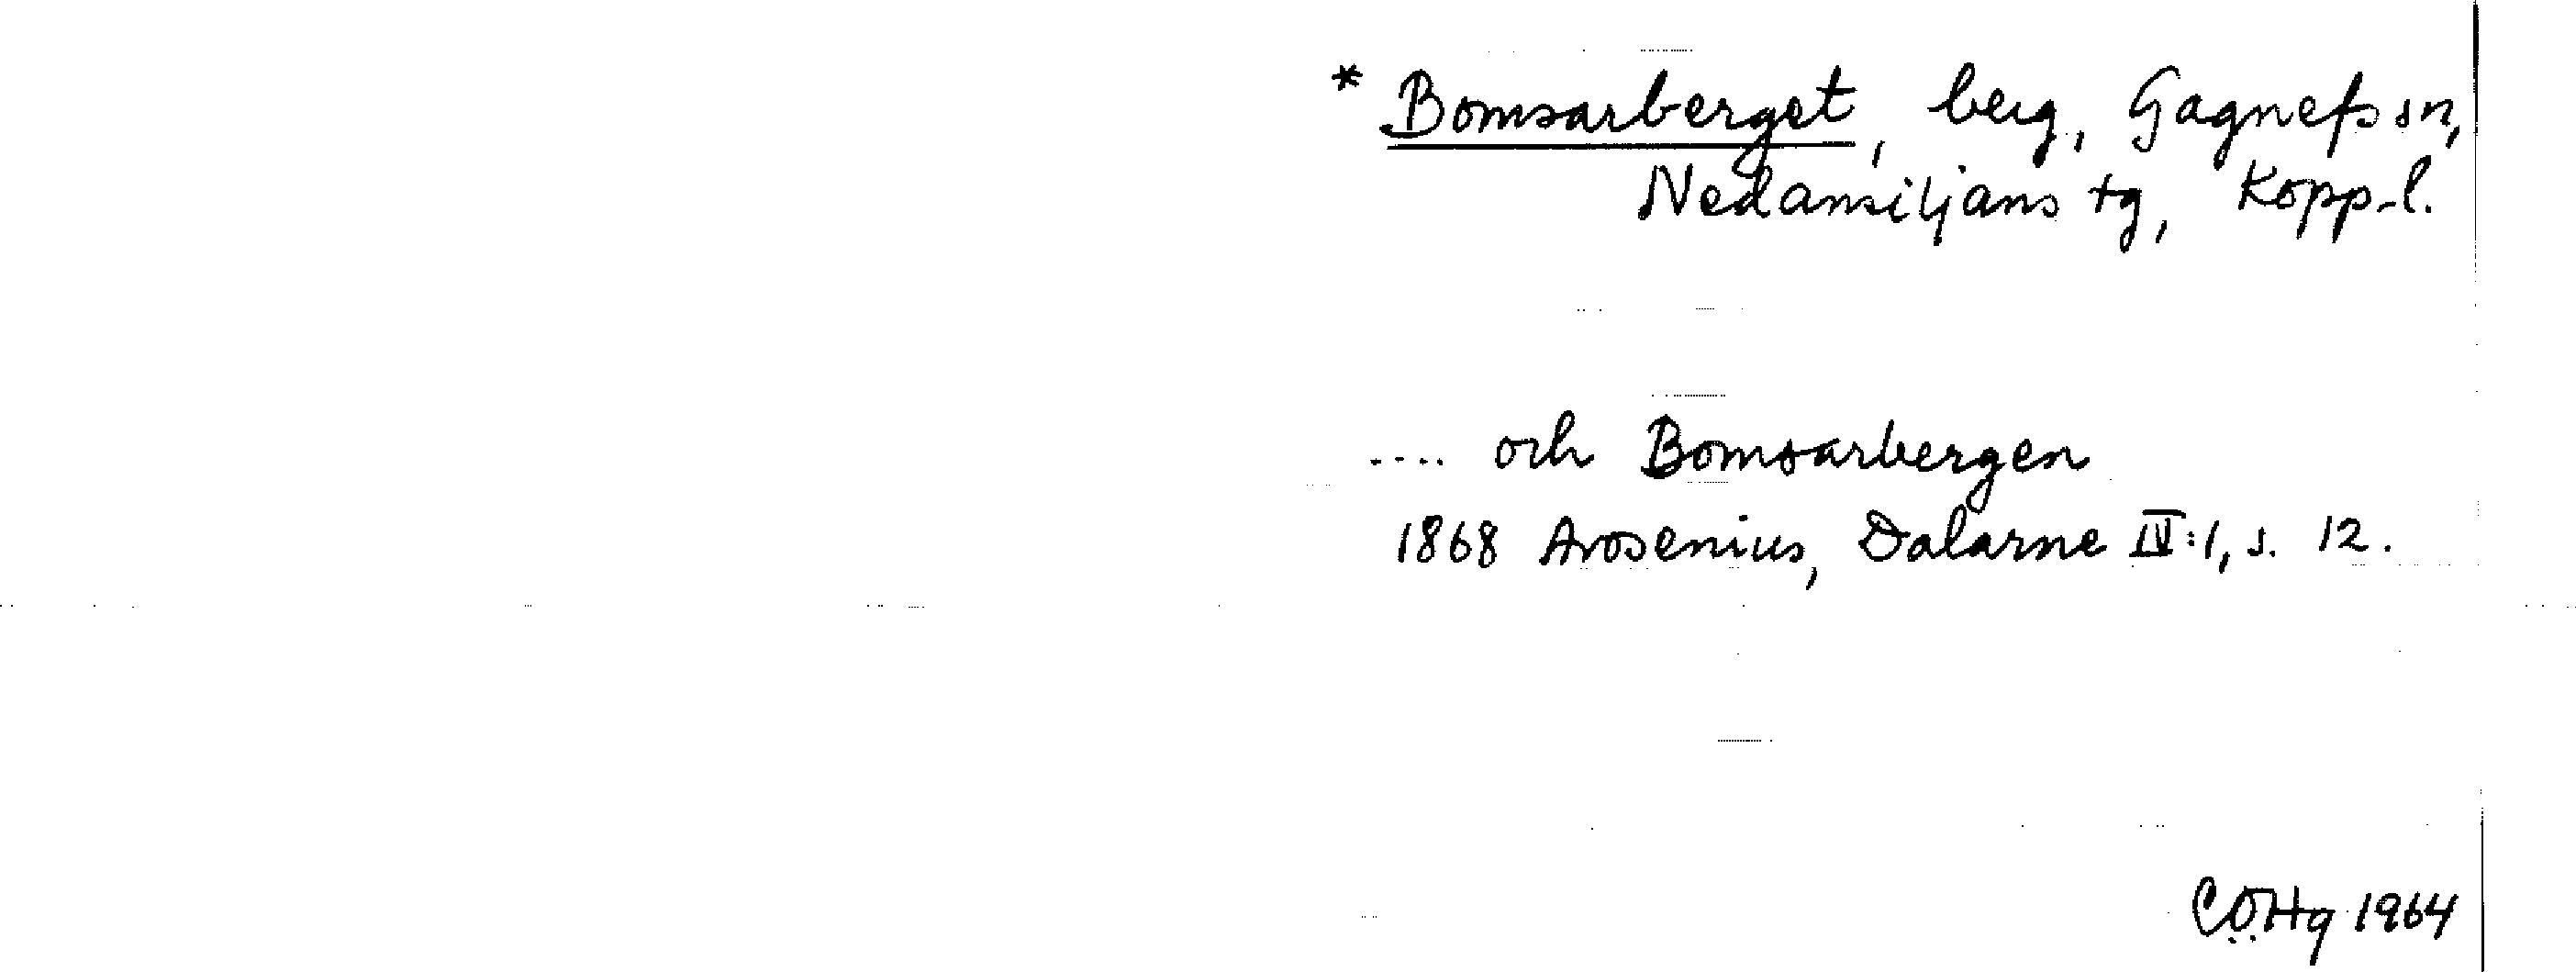 * Bomsarberget, berg, Gagnefs sn,
Nedansiljans tg, Kopp.l.
.... och Bomsarbergen
1868 Arosenius, Dalarne IV:1, s. 12.
COHg 1964